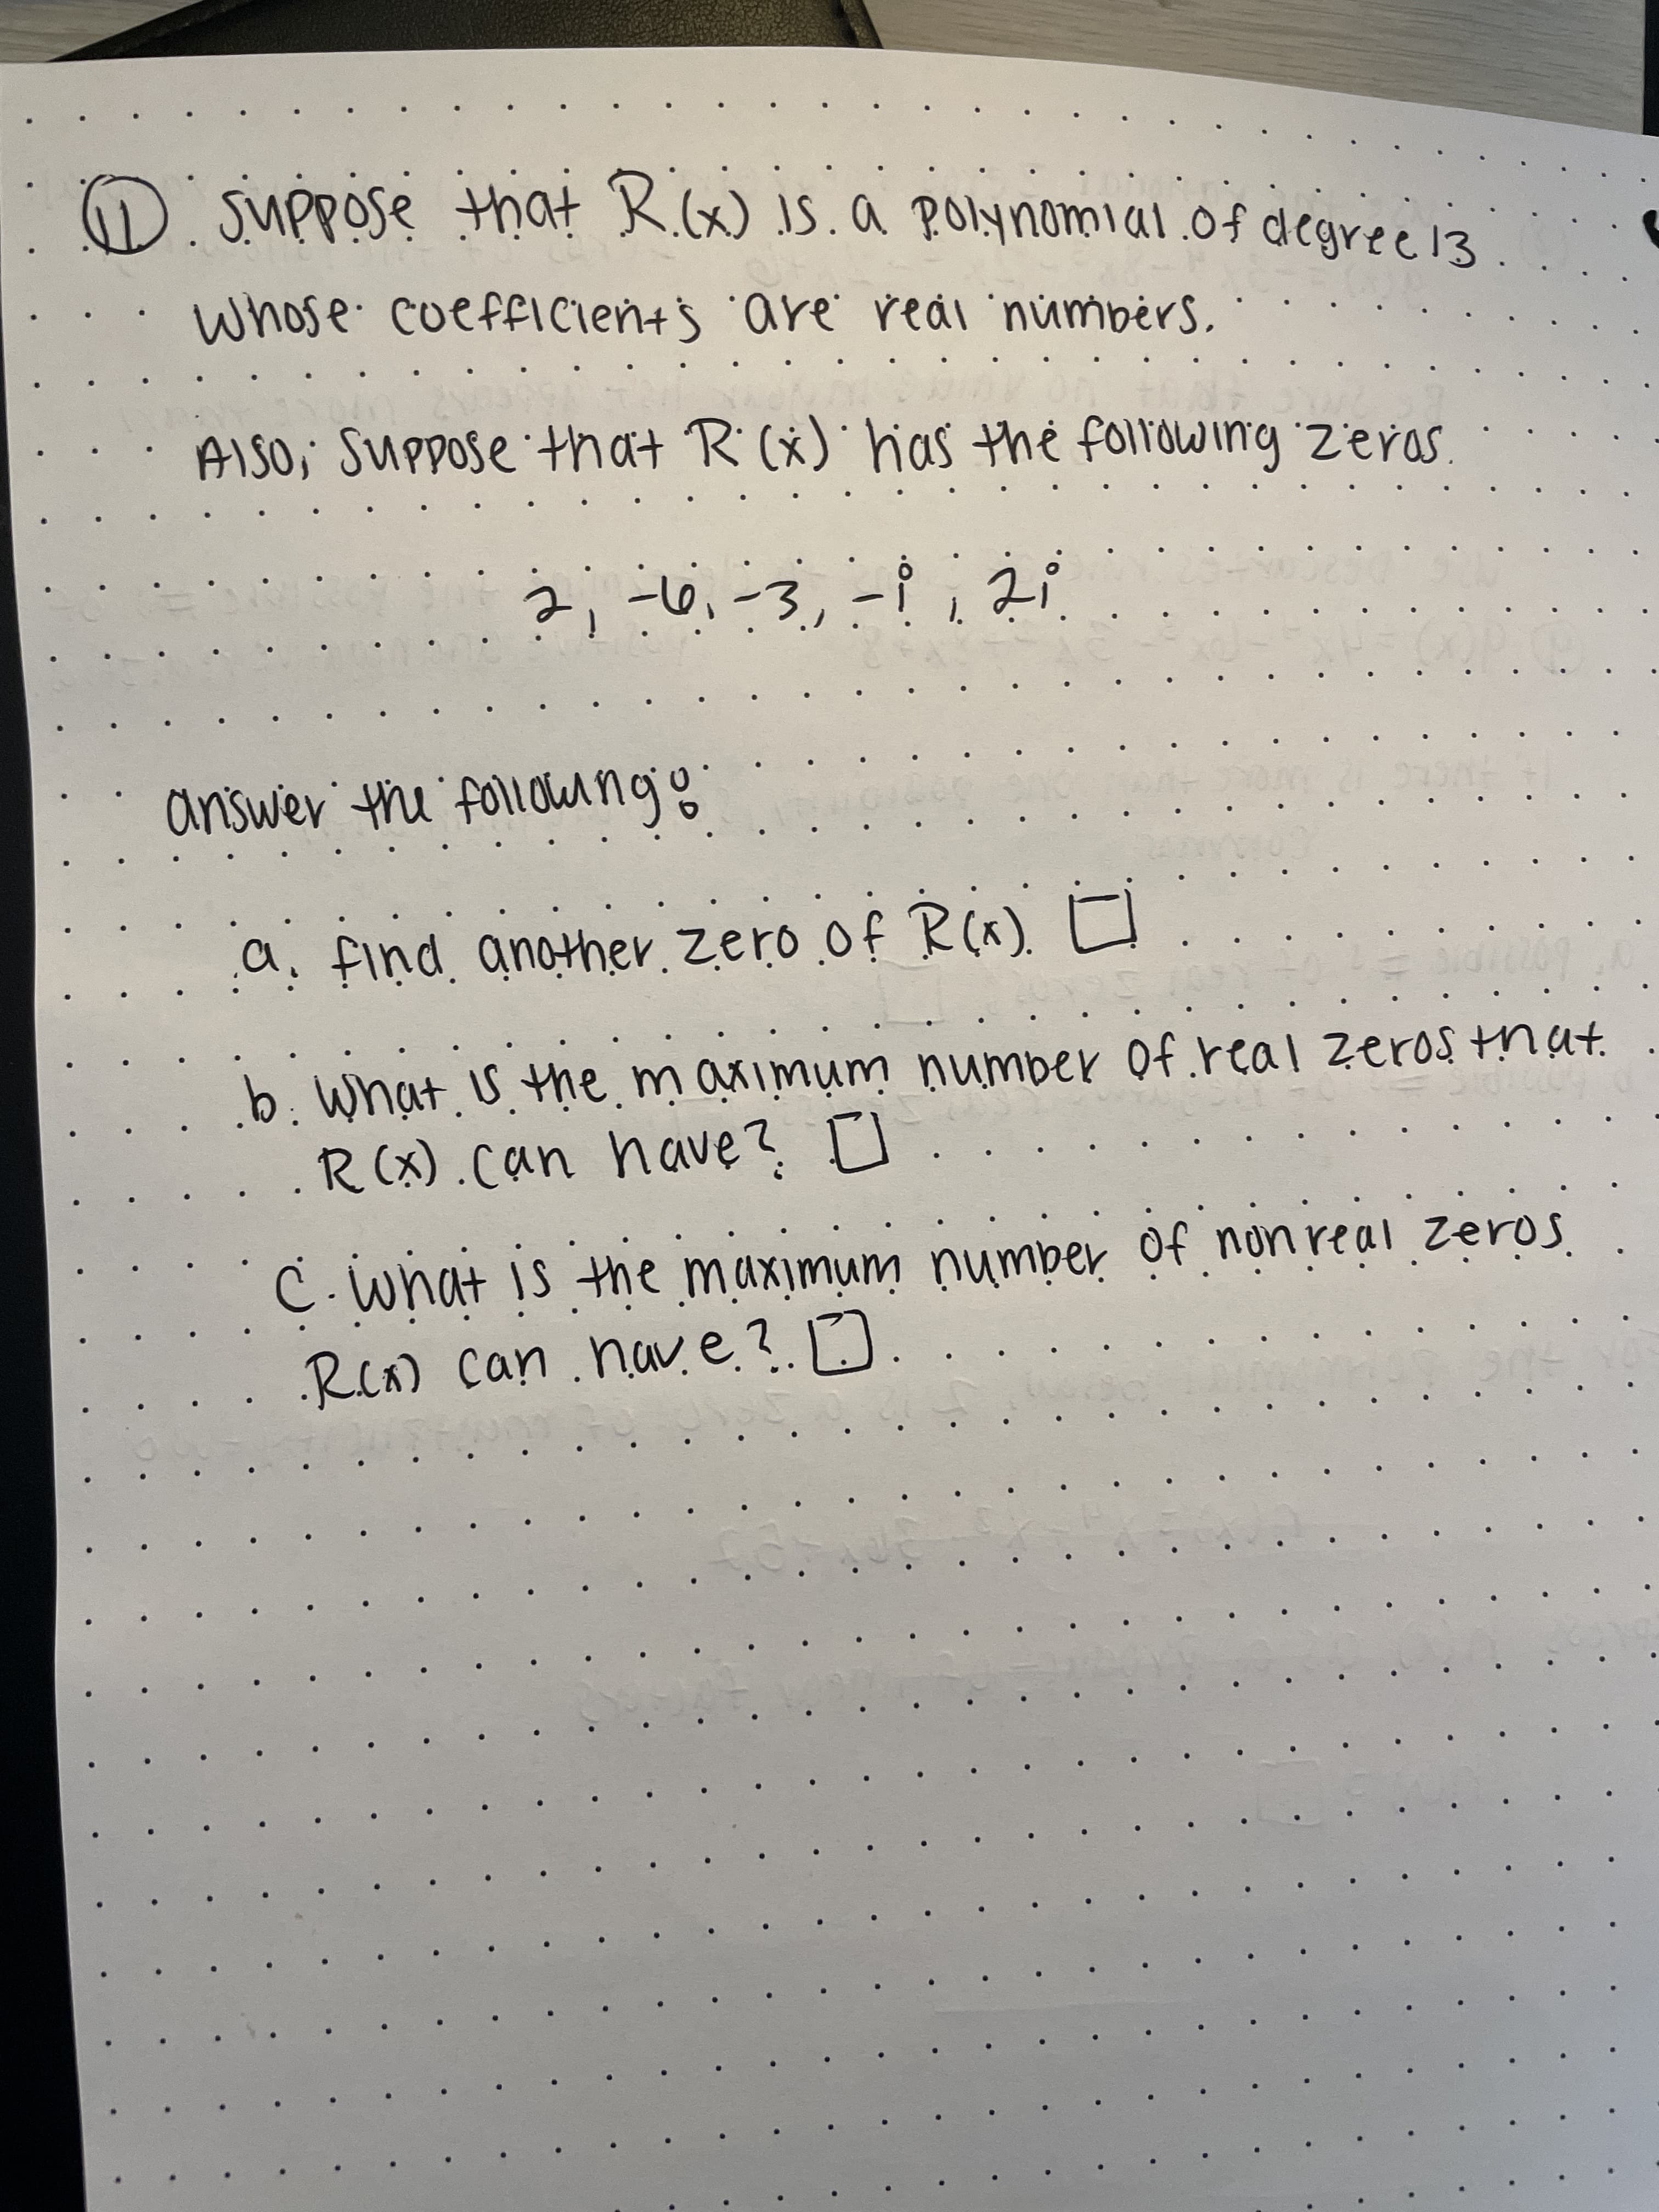 11 Suppose that R(x) is a polynomial of degree 13
whose coefficients are real numbers.
Also, suppose that R(x) has the following zeros.
2, -6, -3, -i, 2i
answer the following:
a. find another zero of R(x)
b. What is the maximum number of real zeros that
R(x) can have?
C. What is the maximum number of nonreal zeros
R(x) can have?